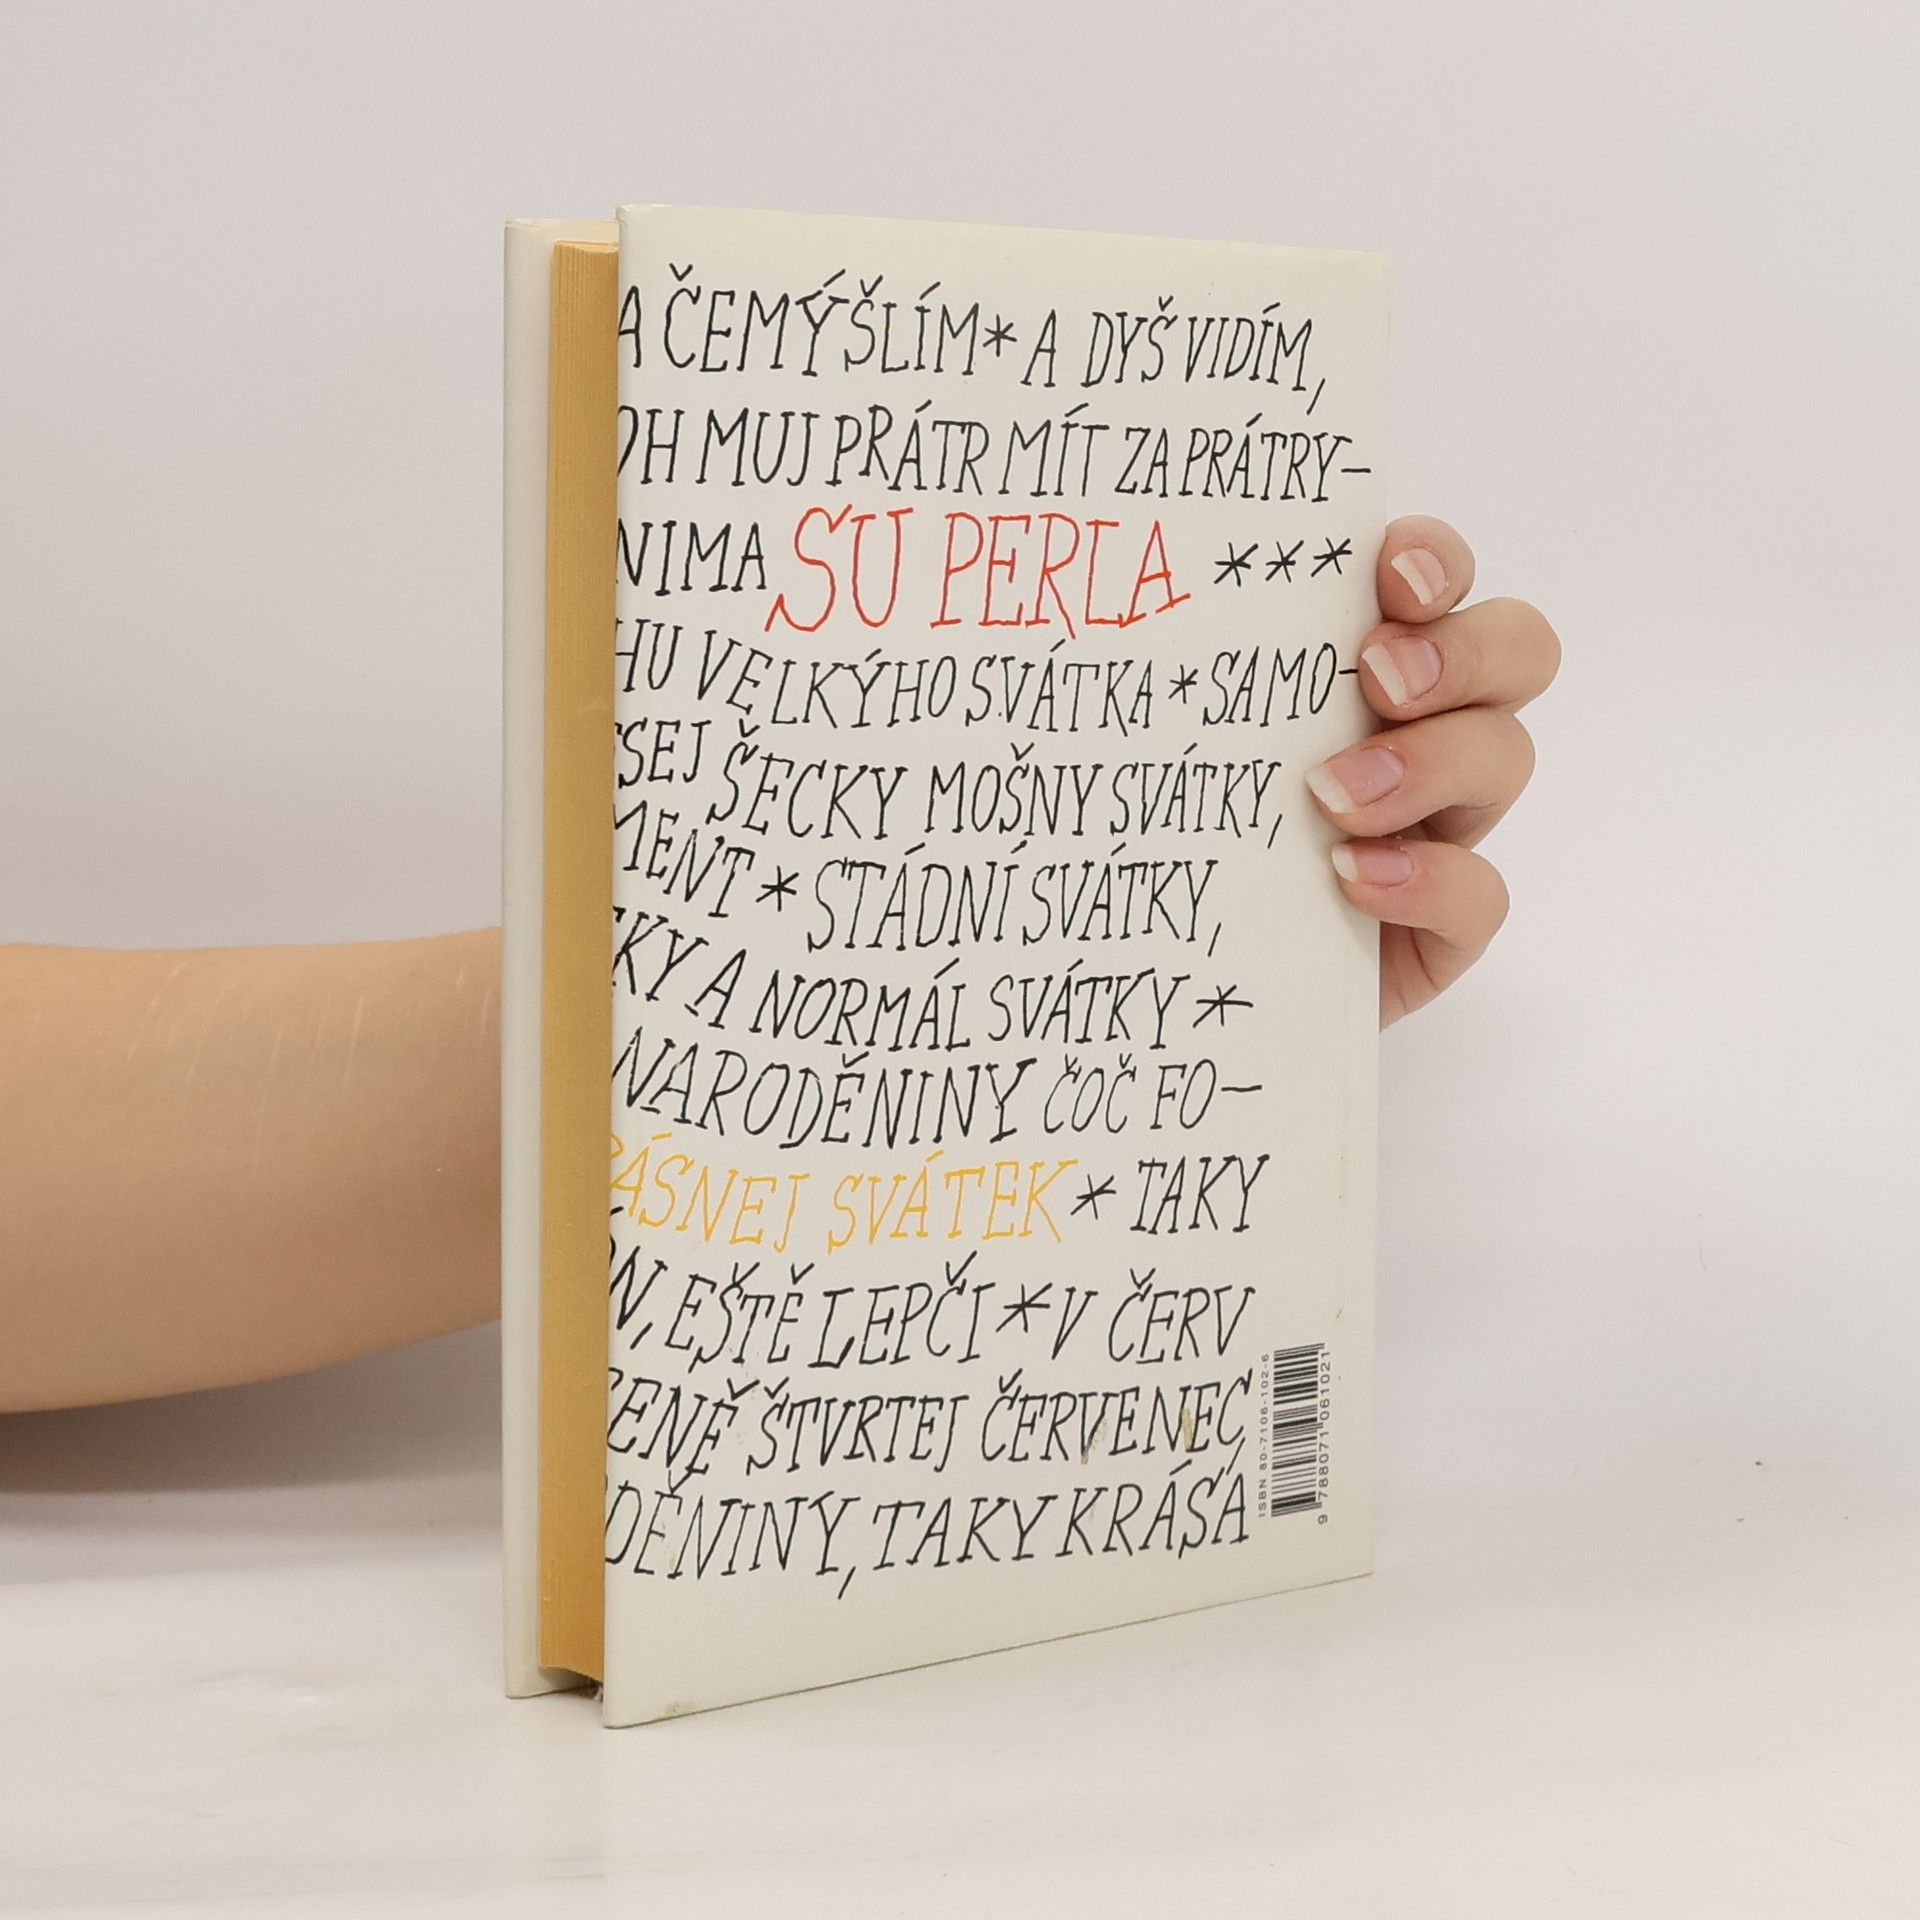 A ČEMÝŠLÍM * A DYŠ VIDÍM,
OH MUJ PRÁTR MÍT ZA PRÁTRY—
NIMA SU PERLA ***
HU VELKÝHO SVÁTKA * SAMO-
SEJ ŠECKY MOŠNY SVÁTKY,
MENT * STÁDNÍ SVÁTKY,
KY A NORMÁL SVÁTKY *
NARODĚNINY ČOČ FO—
ÁSNEJ SVÁTEK * TAKY
N, EŠTĚ LEPČI * V ČERV
ENĚ ŠTVRTEJ ČERVENEC,
DĚNINY, TAKY KRÁSÁ
ISBN 80-7106-102-6
9 788071 061021